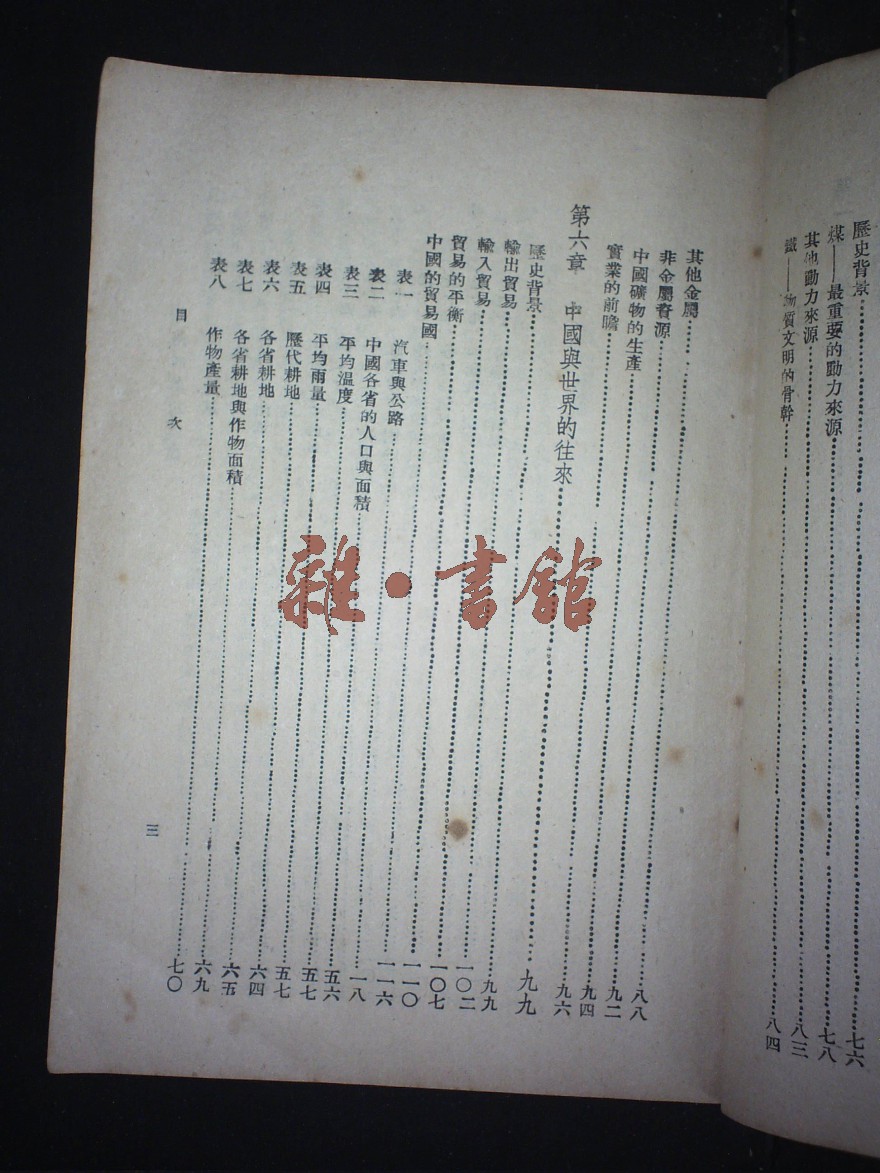 歷史背景……七六
煤——最重要的動力來源……七八
其他動力來源……八三
鐵——物質文明的骨幹……八四
其他金屬……八八
非金屬資源……九二
中國礦物的生產……九四
實業的前瞻……九六
第六章　中國與世界的往來……九九
歷史背景……九九
輸出貿易……一〇二
輸入貿易……一〇七
貿易的平衡……一一〇
中國的貿易國……一一六
表一　汽車與公路……一八
表二　中國各省的人口與面積……五六
表三　平均溫度……五七
表四　平均雨量……五七
表五　歷代耕地……六四
表六　各省耕地……六五
表七　各省耕地與作物面積……六九
表八　作物產量……七〇
目　次
三
雜·書館